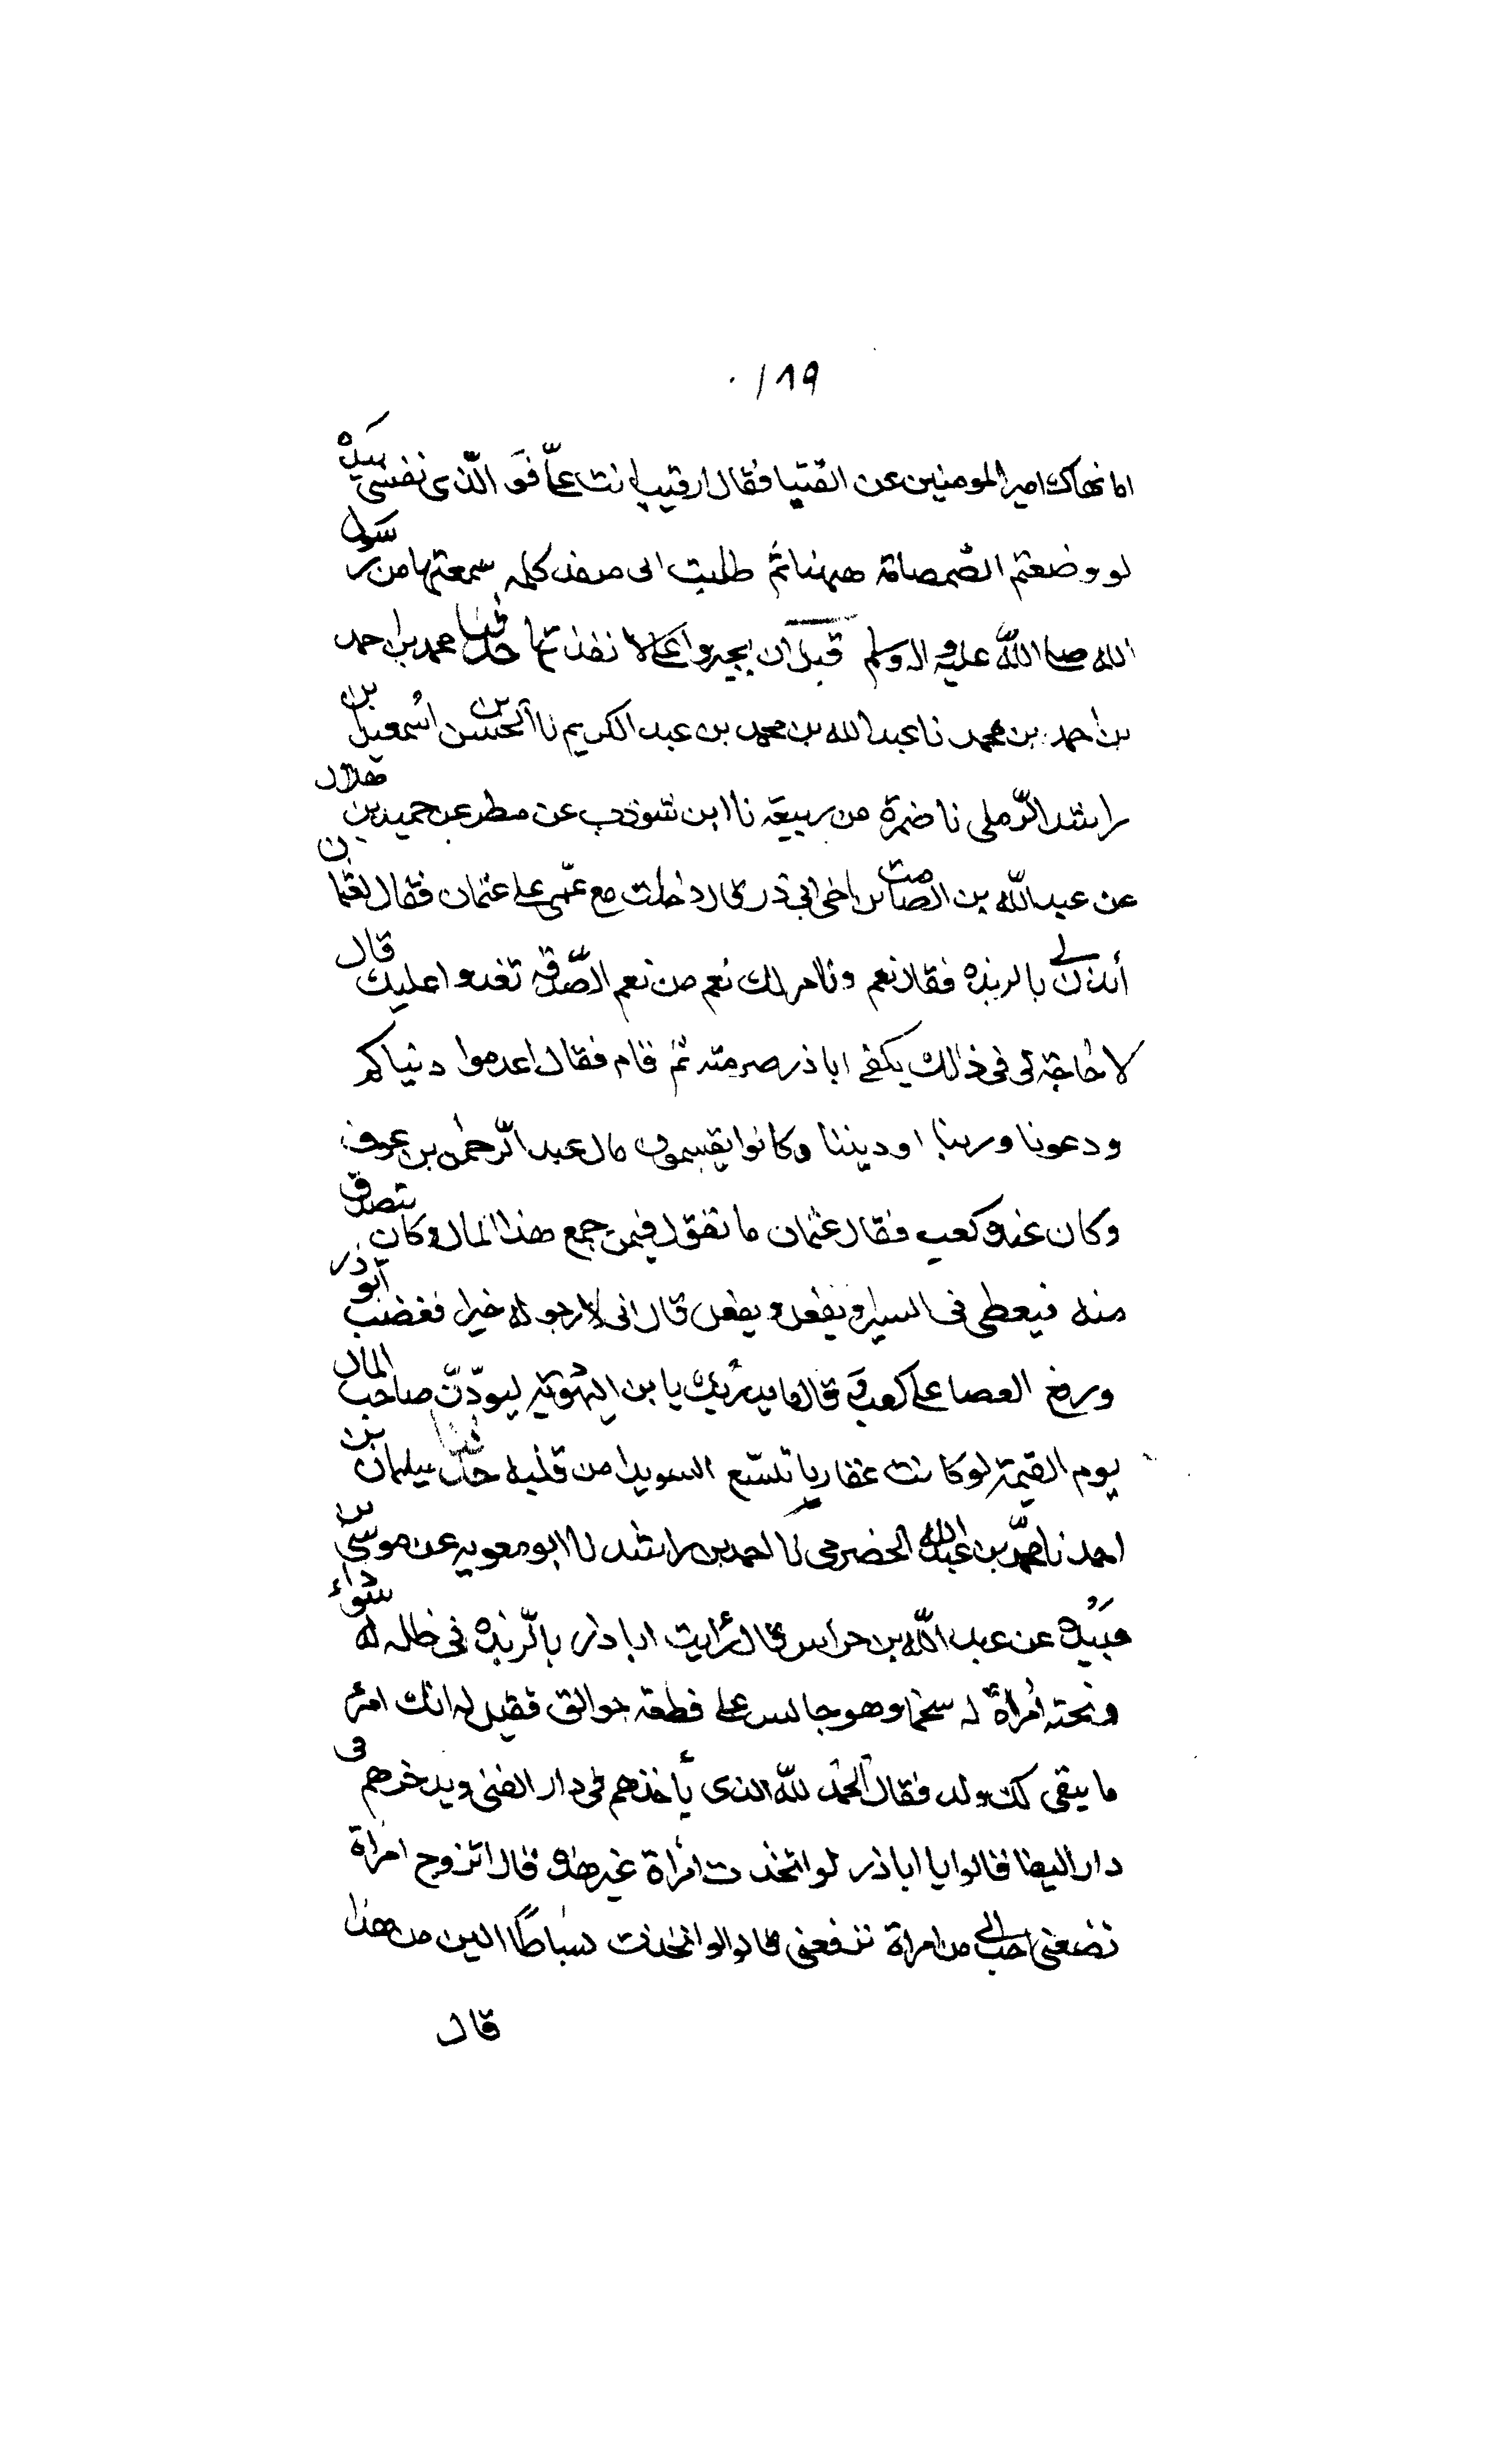 ١٨٩
اما نهاك امير المومنين عن الفتيا فقال ارقيب انت علّى فَو الّذى نفسى بيده
لو وضعتم الصّمصامة ههنا ثم طلبت الى منفذ كلمه سمعتها من رسول
الله صلى اللّه عليه و اله وسلم قبل ان يجيروا على لا نفذتها حدثنا محمد بن احمد
بن احمد بن محمد نا عبد الله بن محمد بن عبد الكريم نا الحسن بن اسمعيل بن
راشد الرّملى نا ضمرة من ربيعة نا ابن شوذب عن مطر عن حميد بن هلال
عن عبد اللّه بن الصامت بن اخى ابى ذر قال دخلت مع عمّى على عثمان فقال لعثمان
أئذن لى بالربذه فقال نعم ونامر لك نعم من نعم الصّدقه تغدوا عليك قال
لا حاجة لى فى ذلك يكفى اباذر صرمته ثم قام فقال اعدموا دنياكم
ودعونا وربنا او ديننا وكانوا يقسمون مال عبد الرّحمن بن عوف
وكان عنده كعب فقال عثمان ما تقول فيمن جمع هذا المال وكان يتصدق
منه فيعطى فى السبيل و يفعل و يفعل قال انى لارجو له خيرا فغضب ابو ذر
ورفع العصا على كعب و قال وما يدريك يا بن اليهوديّه ليودّنّ صاحب المال
يوم القيمة لو كانت عقاربا تلسّع السويدا من قلبه حدثنا سيلمان بن
احمد نا محمّد بن عبد الله الحضرمى نا احمد بن راشد نا ابو معويه عن موسى بن
عبيده عن عبد اللّه بن خراس قال رايت اباذر بالرّبذه فى ظله له سوداء
وتحته امراة له سحما وهو جالس على قطعه جوالق فقيل له انك امرء
ما يبقى لك ولد فقال الحمد للّه الذى يأخذهم فى دار الفنى ويدخرهم فى
دار البقا فقالوا يا اباذر لو اتخذت امراة غير هذه قال اتزوج امراة
تضعنى احب الى من امراة ترفعنى قالوا لو اتخذت بساطا الين من هذا
قال